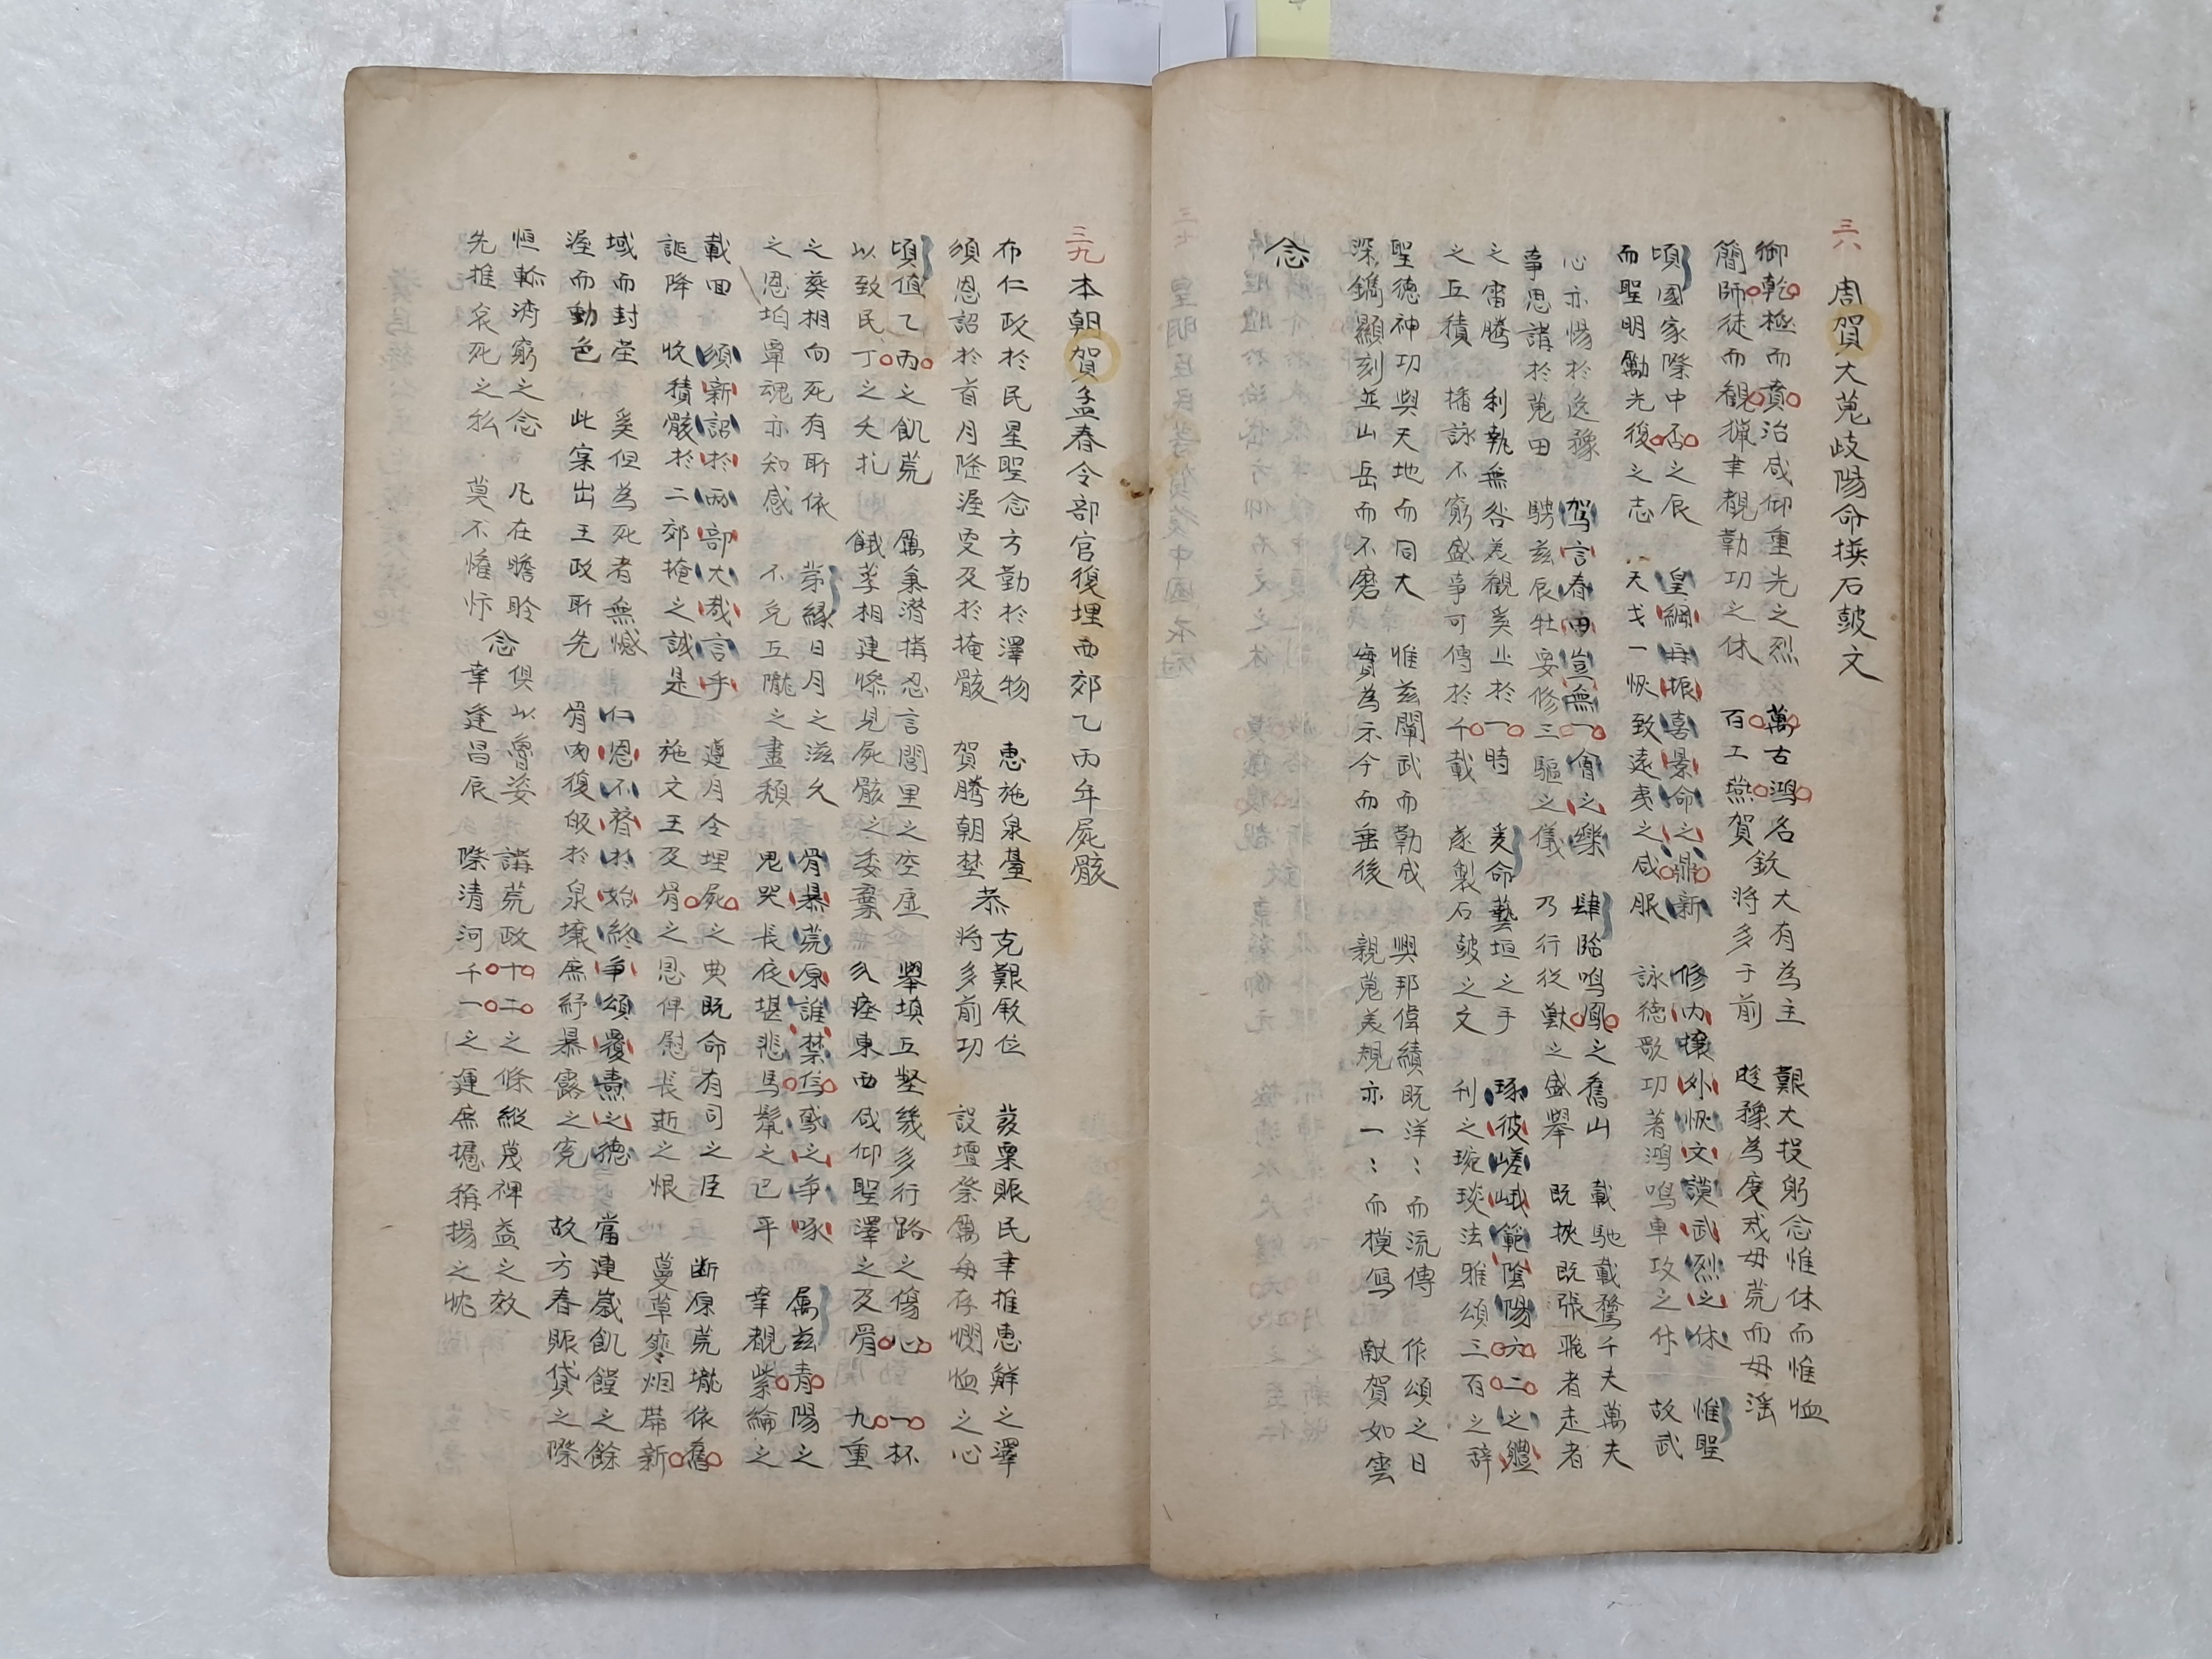 三八 周賀大蒐歧陽命撰石皷文
御乾極而賁治咸仰重光之烈 萬古鴻名 欽 大有為主 艱大投躬念惟休而惟恤
簡師徒而觀獵聿覩勒功之休 百工燕賀 將多于前 逸豫為度戒毋荒而毋滛
頃國家際中否之辰 皇綱再振喜景命之鼎新 修內懷外恢文謨武烈之休 惟聖
而聖明勵光復之志 天戈一恢致遠夷之咸服 詠德歌功著鴻鳴車攻之什 故武
心亦惕於逸豫 駕言春畋豈無一會之樂 肆 鳴鳳之舊山 載馳載騖千夫萬夫
事思講於蒐田 騁茲辰牡妥修三驅之儀 乃行從獸之盛舉 既挾既張飛者走者
之雷騰 利執無咎美觀奚止於一時 爰命藝垣之手 琢彼嵯峨範陰陽六二之體
之丘積 播詠不窮盛事可傳於千載 遂製石皷之文 刊之琬琰法雅頌三百之辞
聖德神功與天地而同大 惟茲闡武而勒成 興邦偉績既洋〻而流傳 作頌之日
深鐫顯刻並山岳而不磨 實為示今而垂後 親蒐美規亦一〻而摸寫 献賀如雲
念
三九 本朝賀孟春令部官復埋西郊乙丙年屍骸
布仁政於民星聖念方勤於澤物 惠施泉臺 恭 克艱厥位 發粟賑民聿推惠鮮之澤
須恩詔於首月隆渥雯及於掩骸 賀騰朝埜 將多前功 設壇祭厲每存憫恤之心
頃值乙丙之飢荒 厲氣潜搆忍言閭里之空虛 舉填丘壑幾多行路之傷心 一杯
以致民丁之夭札 餓莩相連慘見屍骸之委棄 久瘞東西咸仰聖澤之及骨 九重
之葵相向死有所依 茅緣日月之滋久 骨暴荒原誰禁烏鳶之爭啄 属茲青陽之
之恩垍單魂亦知感 不免丘隴之盡頹 鬼哭長夜堪悲馬鬣之已平 幸覩紫綸之
載回 須新詔於兩部大哉言乎 遵月令埋屍之典既命有司之臣 断原荒壠依舊
誕降 收積骸於二郊掩之誠是 施文王及骨之恩俾慰長逝之恨 蔓草寒烟帶新
域而封塋 奚但為死者無憾 仁恩不替於始終爭頌覆燾之德 當連歲飢饉之餘
渥而動色 此寔出王政所先 骨肉復皈於泉壤庶紓暴露之冤 故方春賑貸之際
恒軫濟窮之念 凡在瞻聆 俱以魯姿 講荒政十二之條縱蔑裨益之效
先推哀死之私 莫不懽忭 念 幸逢昌辰 際清河千一之運庶攄稱揚之忱